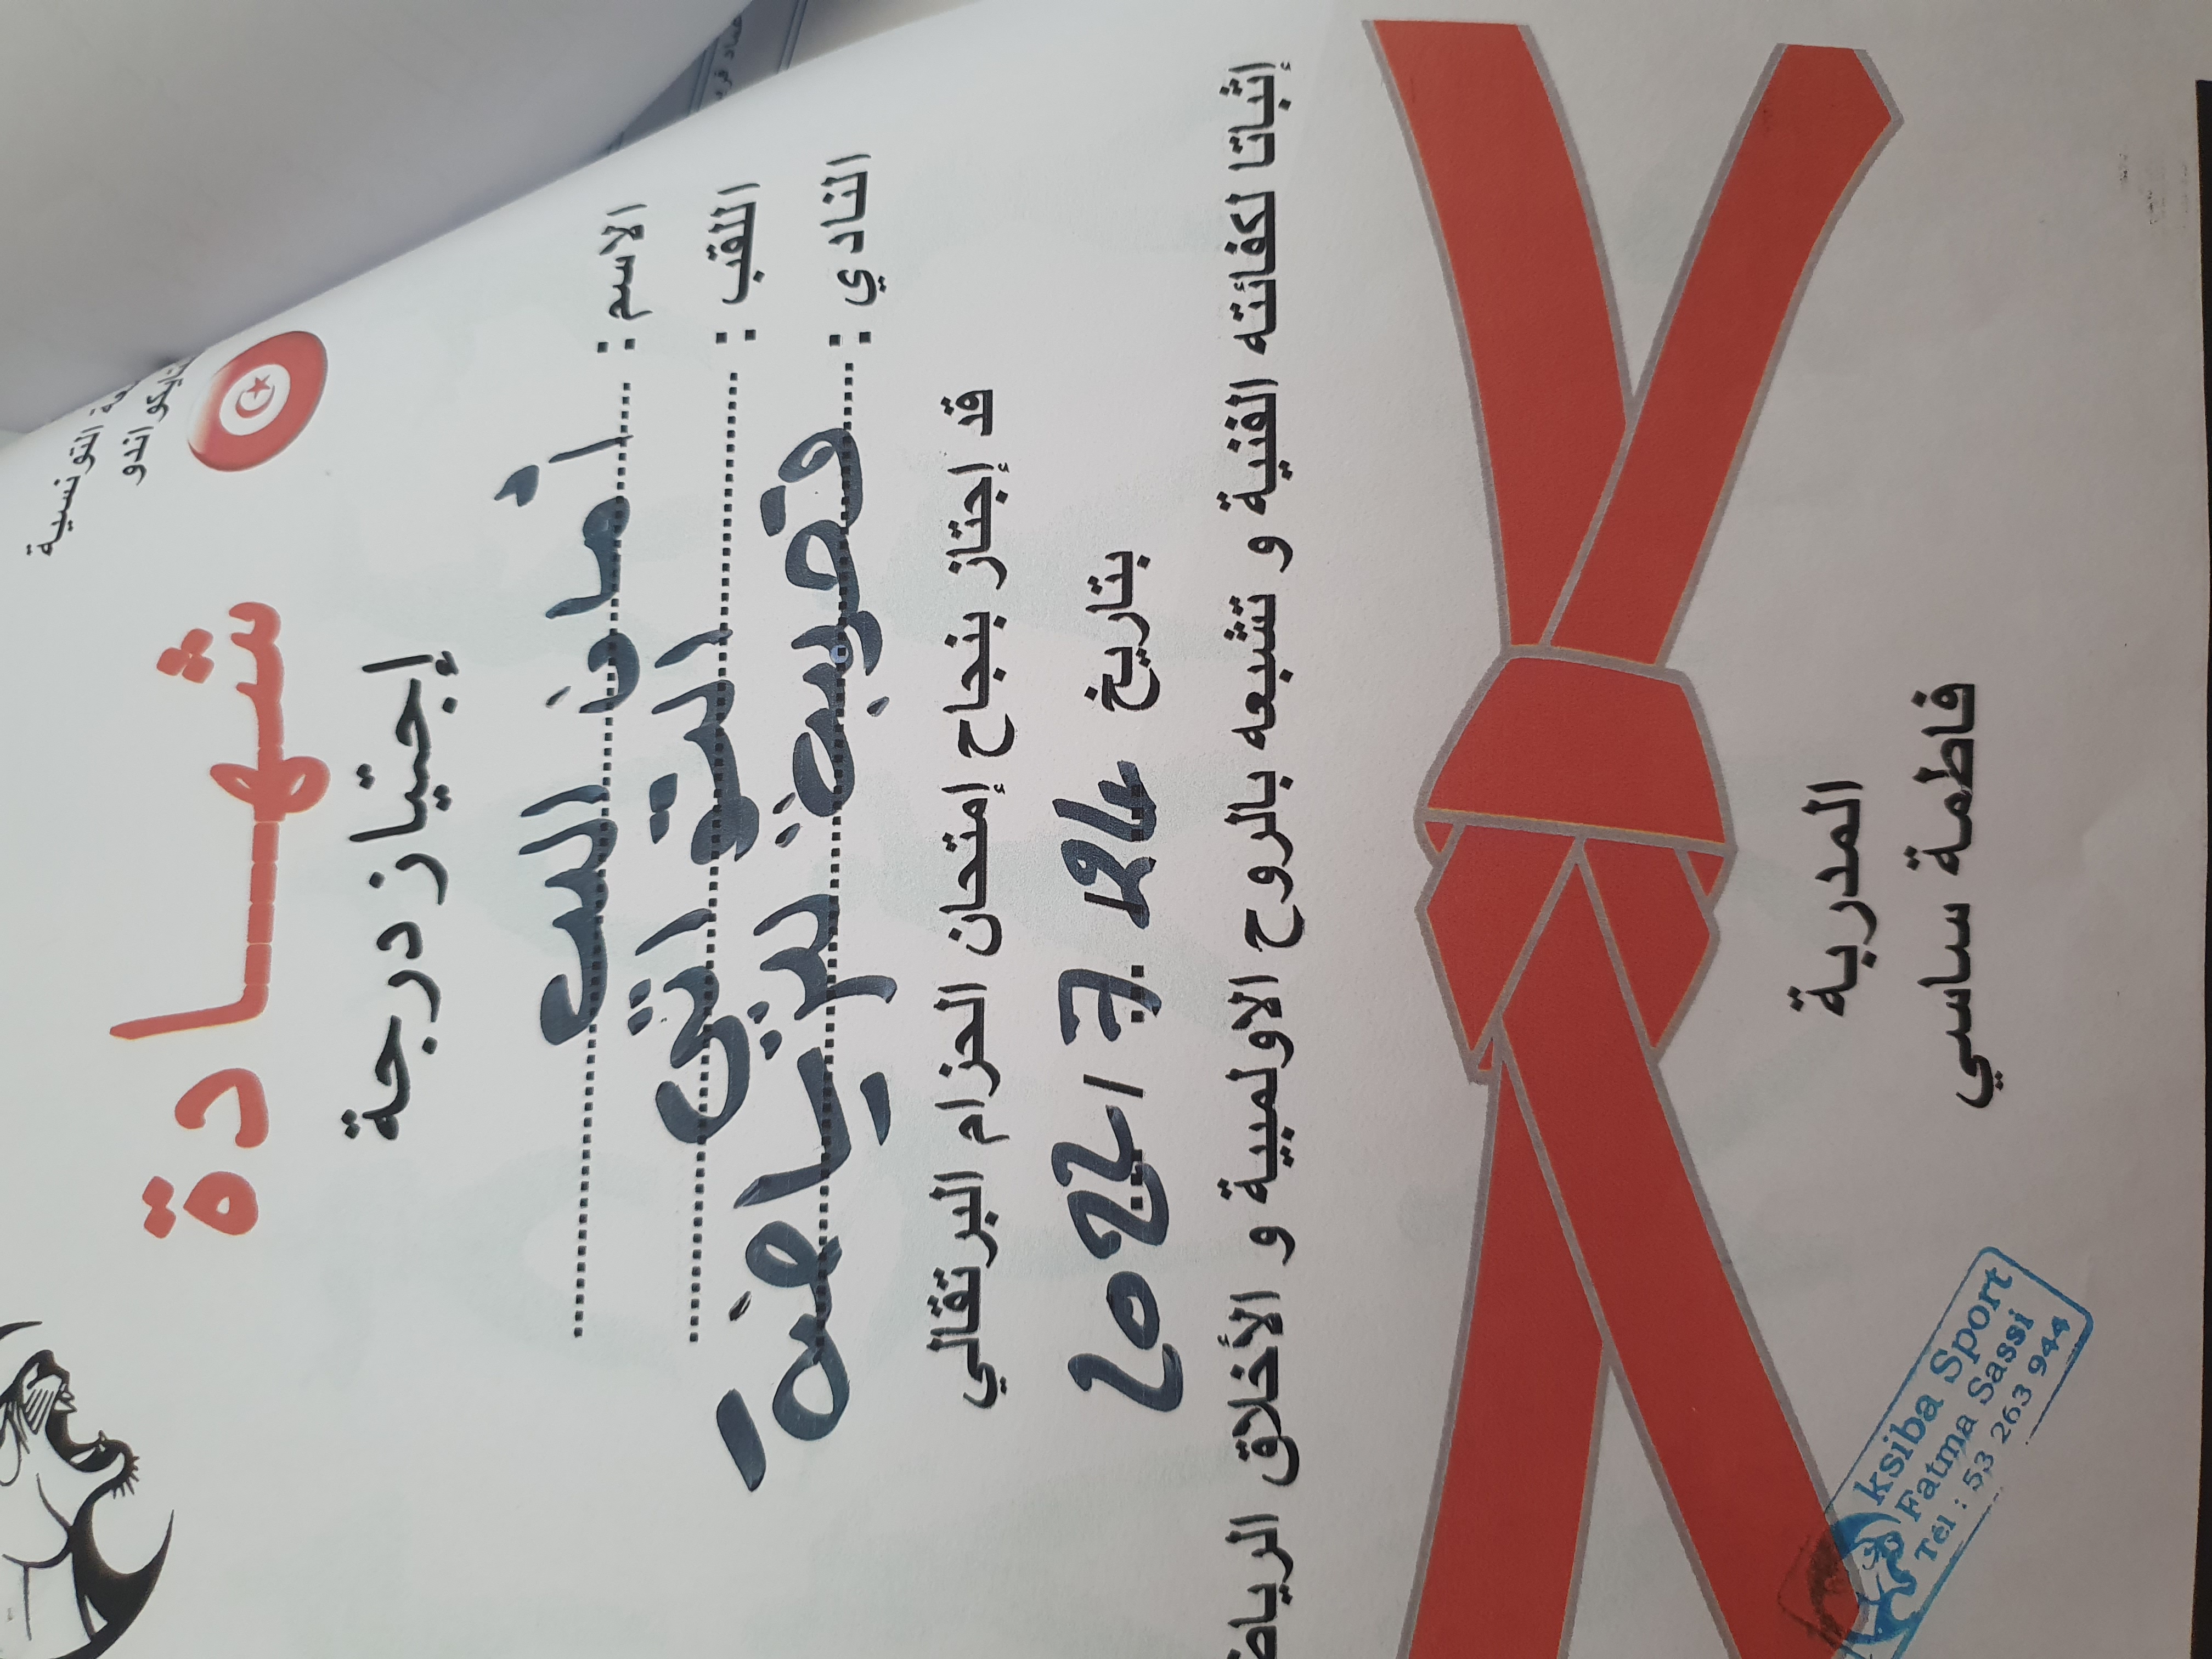 التونسية
للتايكواندو
شهادة
إجتياز درجة
الاسم : أمان الله
اللقب :
النادي : قصيبة الرياضية
قد إجتاز بنجاح إمتحان الحزام البرتقالي
بتاريخ 2022/7/24
إثباتا لكفائته الفنية و تشبعه بالروح الاولمبية و الأخلاق
المدربة
فاطمة ساسي
ksiba Sport
Fatma Sassi
Tél : 53 263 944